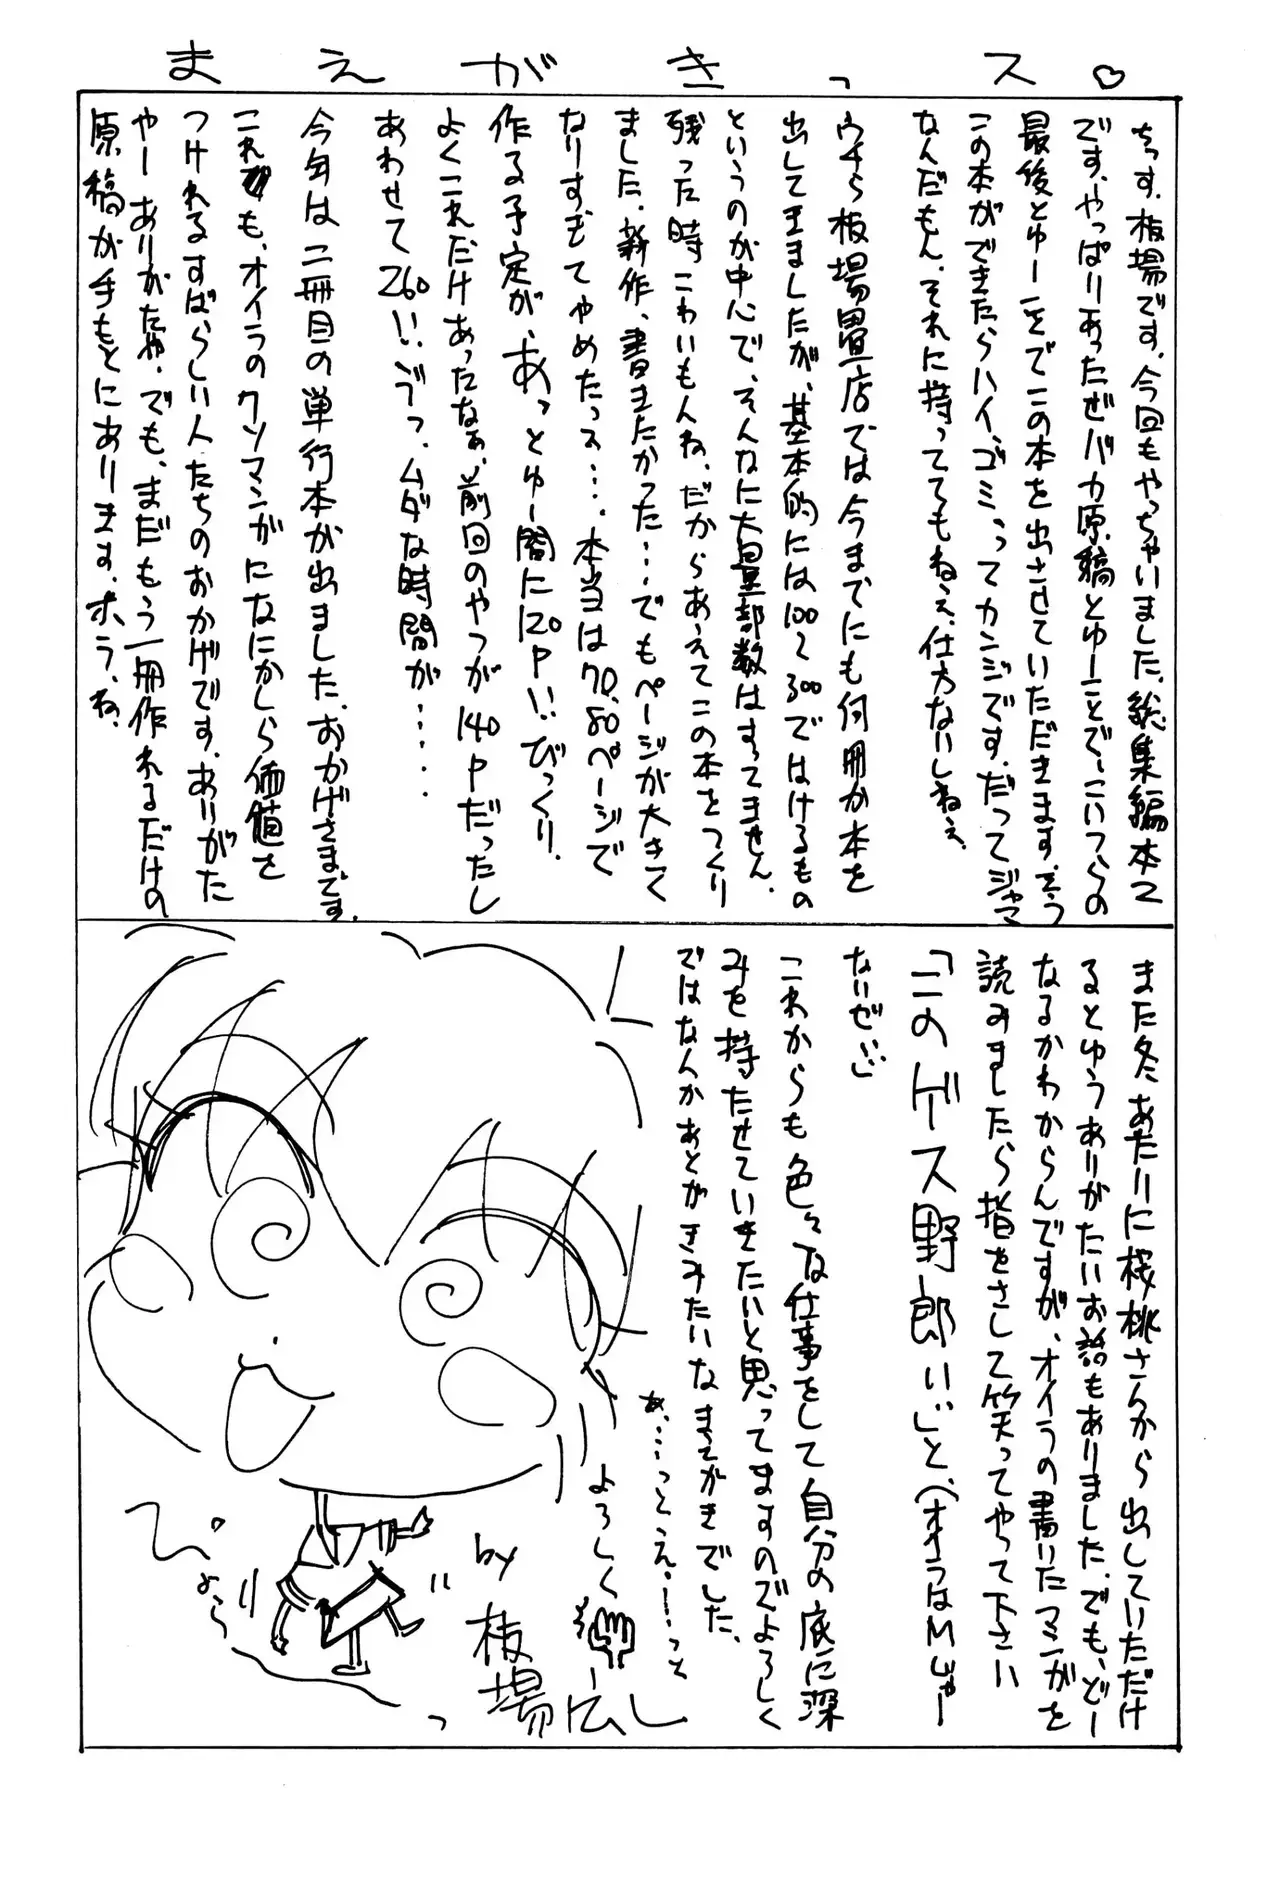 まえがきっス♡
ちっす。板場です。今回もやっちゃいました。総集編本2
です。やっぱりあったぜバカ原稿とゆーことで、こいつらの
最後とゆーことでこの本を出させていただきます。そっ
この本ができたらハイ、ゴミっってカンジです。だってジャマ
なんだもん。それに持っててもねぇ、仕方ないしねぇ。
ウチら板場畳店では今までにも何冊か本を
出してきましたが、基本的には100～300ではけるもの
というのが中心で、そんなに大量部数はすってません。
残った時こわいもんね。だからあえてこの本をつくり
ました。新作、書きたかった……でもページが大きく
なりすぎてやめたっス……本当は70、80ページで
作る予定が、あっとゆー間に120P!! びっくり。
よくこれだけあったなぁ、前回のやつが140Pだったし
あわせて260!! ゔっ、ムダな時間が……
今年は二冊目の単行本が出ました。おかげさまです。
これも、オイラのクソマンガになにかしら価値を
つけれるすばらしい人たちのおかげです。ありがた
やー ありがたや。でも、まだもう一冊作れるだけの
原稿が手もとにあります。ホラ、ね。
また冬あたりに桜桃さんから出していただけ
るとゆうありがたいお話もありました。でも、どー
なるかわからんですが、オイラの書いたマンガを
読みましたら指をさして笑ってやって下さい
「このゲース野郎い゛」と、（オイラはMじゃー
ないぜ!!）
これからも色々な仕事をして自分の底に深
みを持たせていきたいと思ってますのでよろしく
ではなんかあとがきみたいなまえがきでした。
あ……っとえー……っと
よろしく
by 板場広し
ぴょら
っ